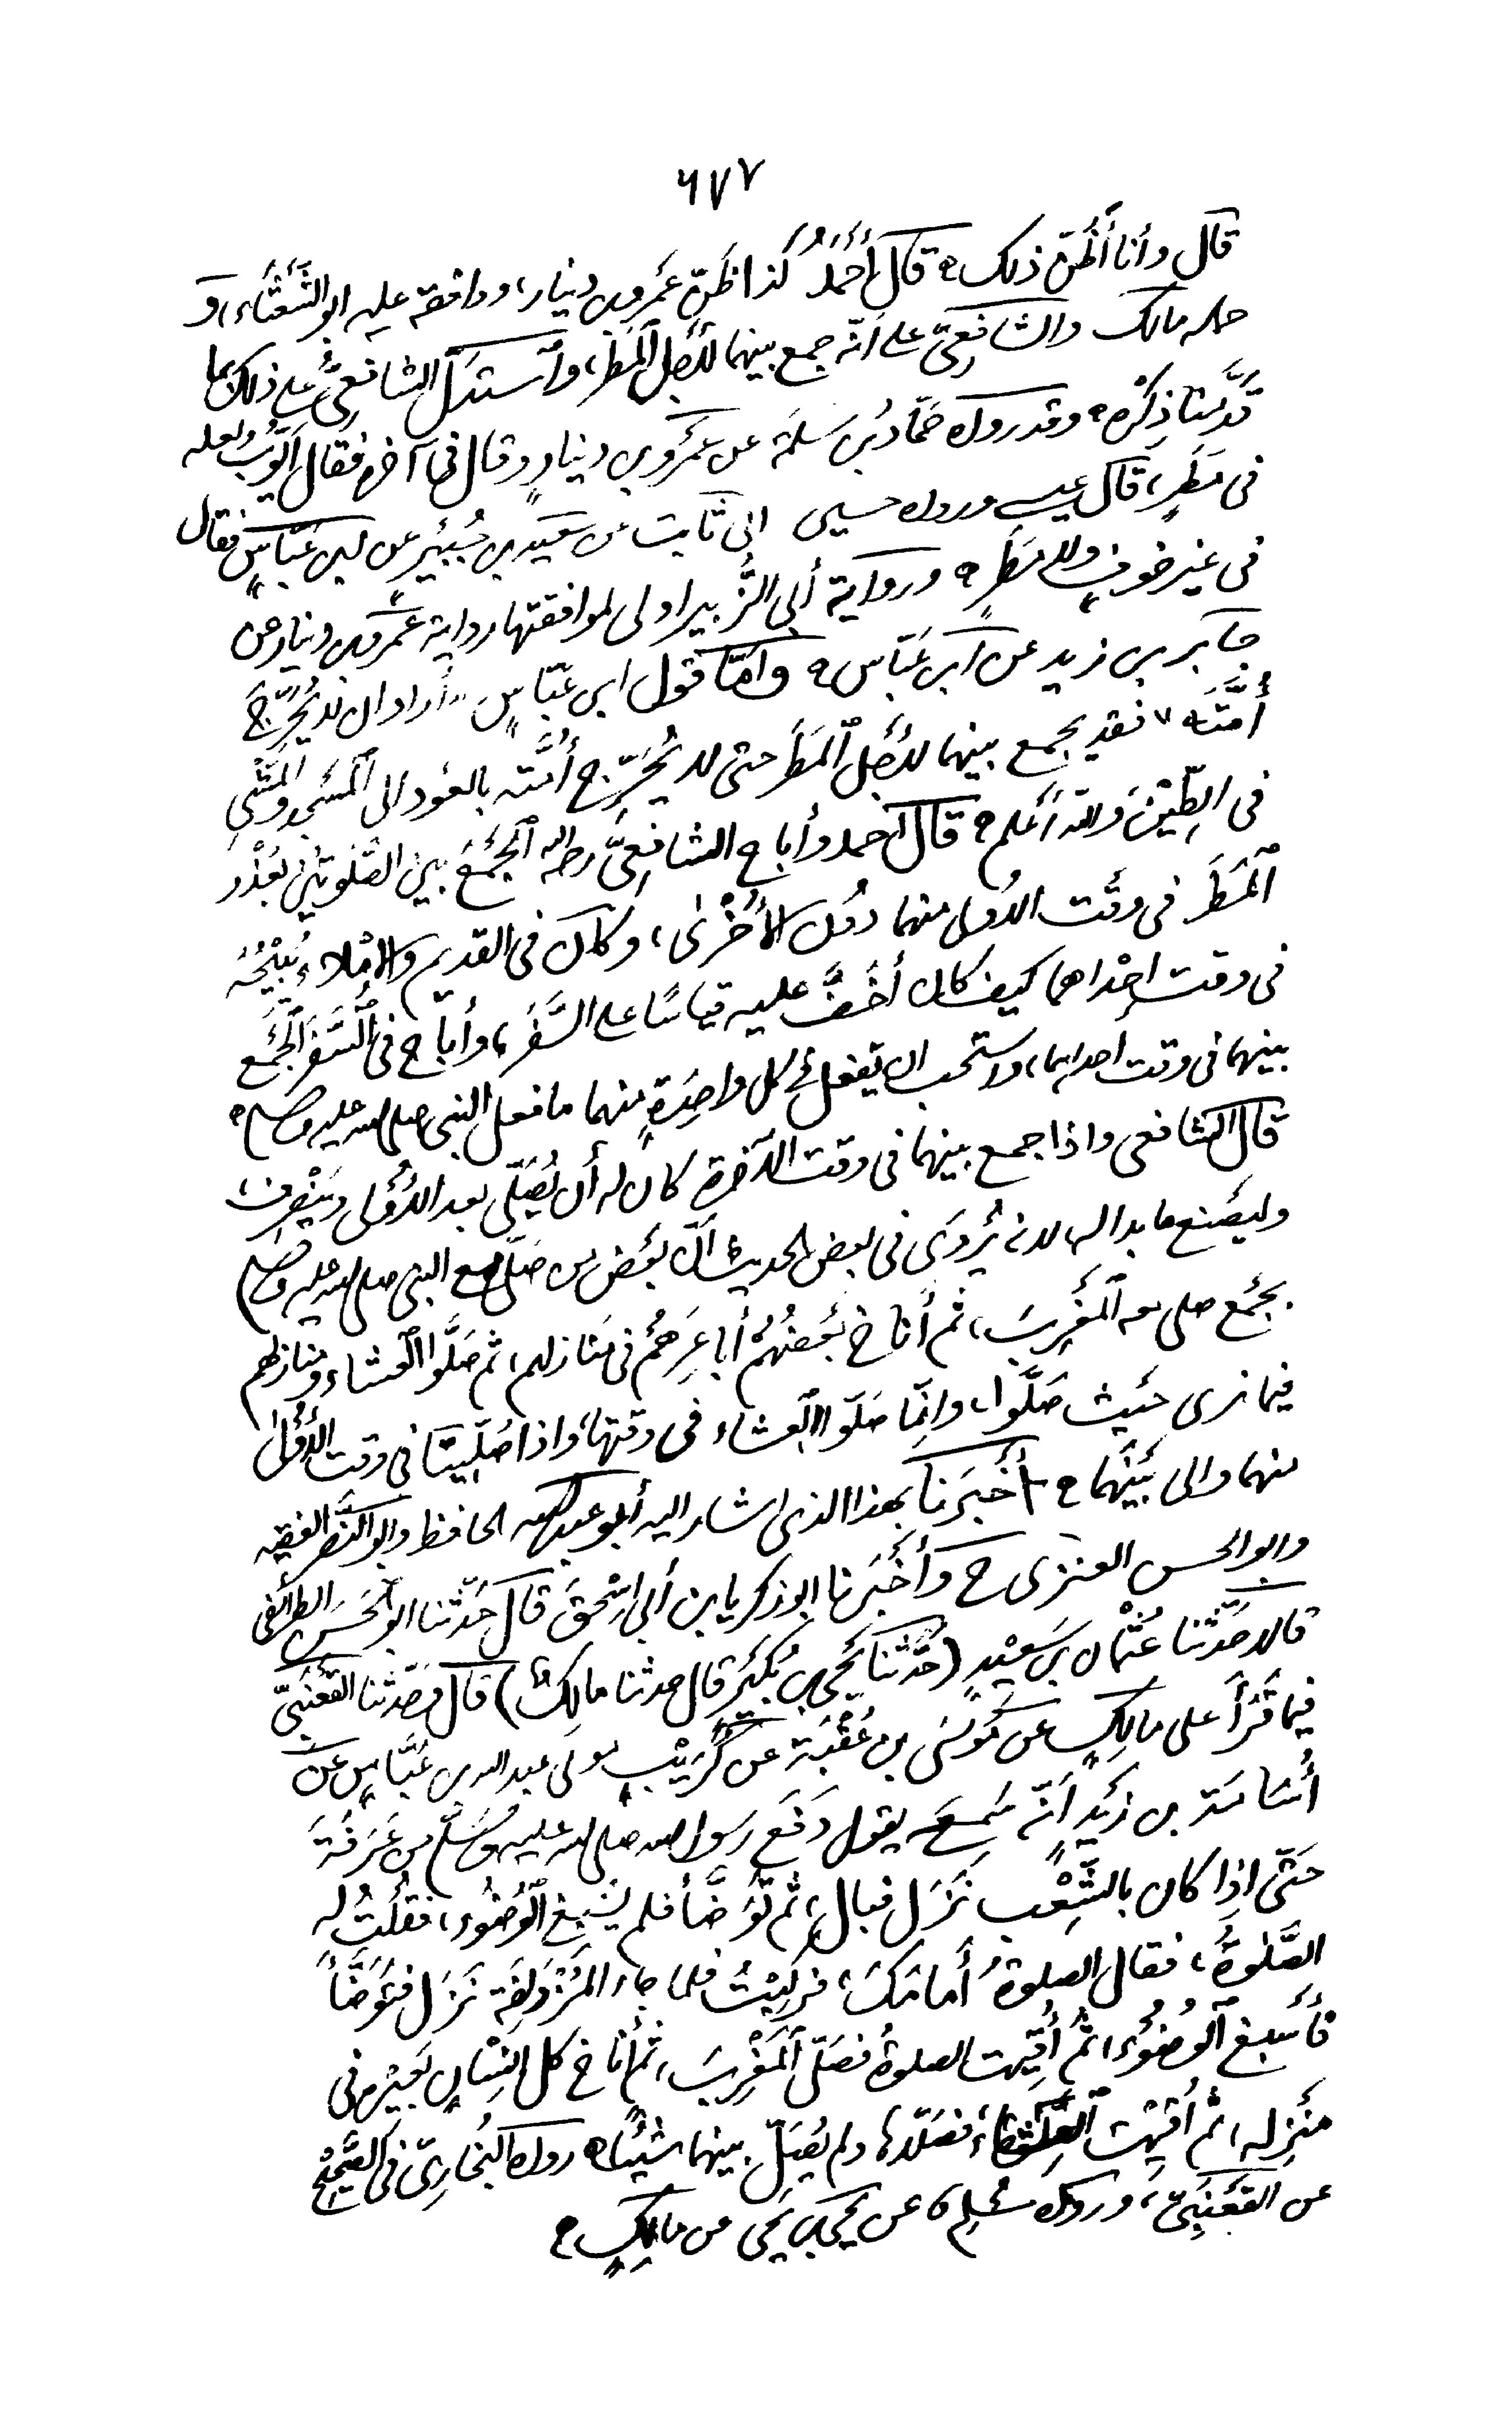 ٦٧٧
قال وأنا أظن ذلك ه قال أحمد كذا ظن عمرو بن دينار، ووافقه عليه ابو الشعثاء، و
حمله مالك والشافعي على أنه جمع بينهما لأجل المطر، واستدل الشافعي على ذلك بما
قدمنا ذكره ه وقد رواه حماد بن سلمة عن عمرو بن دينار وقال في آخره فقال أيوب ولعله
في مطر، قال عيسى ورواه حبيب ابن ابى ثابت عن سعيد بن جبير عن ابن عباس فقال
في غير خوف ولا مطر ه ورواية أبي الزبير اولى لموافقتها رواية عمرو بن دينار عن
جابر بن زيد عن ابن عباس ه وأما قول ابن عباس "أراد ان لا يحرج
أمته" فقد يجمع بينهما لأجل المطر حتى لا يحرج أمته بالعود الى المسجد والمشي
في الطين والله أعلم ه قال أحمد وأباح الشافعي رحمه الله الجمع بين الصلوتين بعذر
المطر في وقت الاولى منهما دون الأخرى، وكان في القديم والإملاء يبيحه
في وقت إحداهما كيف كان أخف عليه قياسا على السفر، وأباح في السفر الجمع
بينهما في وقت احداهما، واستحب ان يفعل في كل واحدة منهما ما فعل النبي صلى الله عليه وسلم ه
قال الشافعي واذا جمع بينهما في وقت الآخرة كان له أن يصلى بعد الأولى وينصرف،
وليصنع ما بدا له، لانه يروى في بعض الحديث أن بعض من صلى مع النبي صلى الله عليه وسلم
بجمع صلى معه المغرب، ثم أناخ بعضهم أباعرهم في منازلهم، ثم صلوا العشاء ومنازلهم
فيما نرى حيث صلوا، وإنما صلوا العشاء في وقتها، واذا صليتا في وقت الأولى
منهما والى بينهما ه أخبرنا بهذا الذى اشار اليه أبو عبد الله الحافظ وابو النضر الفقيه
وابو الحسن العنزى ح وأخبرنا ابو زكريا بن أبي إسحق قال حدثنا ابو الحسن الطرائفي
قالا حدثنا عثمان بن سعيد (حدثنا يحيى بن بكير قال حدثنا مالك) قال وحدثنا القعنبي
فيما قرأ على مالك عن موسى بن عقبة عن كريب مولى عبد الله بن عباس عن
أسامة بن زيد أنه سمعه يقول دفع رسول الله صلى الله عليه وسلم من عرفة
حتى اذا كان بالشعب نزل فبال، ثم توضأ فلم يسبغ الوضوء، فقلت له
الصلوة، فقال الصلوة أمامك، فركبت فلما جاء المزدلفة نزل فتوضأ
فأسبغ الوضوء، ثم أقيمت الصلوة فصلى المغرب، ثم أناخ كل إنسان بعيره في
منزله، ثم أقيمت العشاء، فصلاها، ولم يصل بينهما شيئا ه رواه البخاري في الصحيح
عن القعنبي، ورواه مسلم عن يحيى بن يحيى عن مالك ه